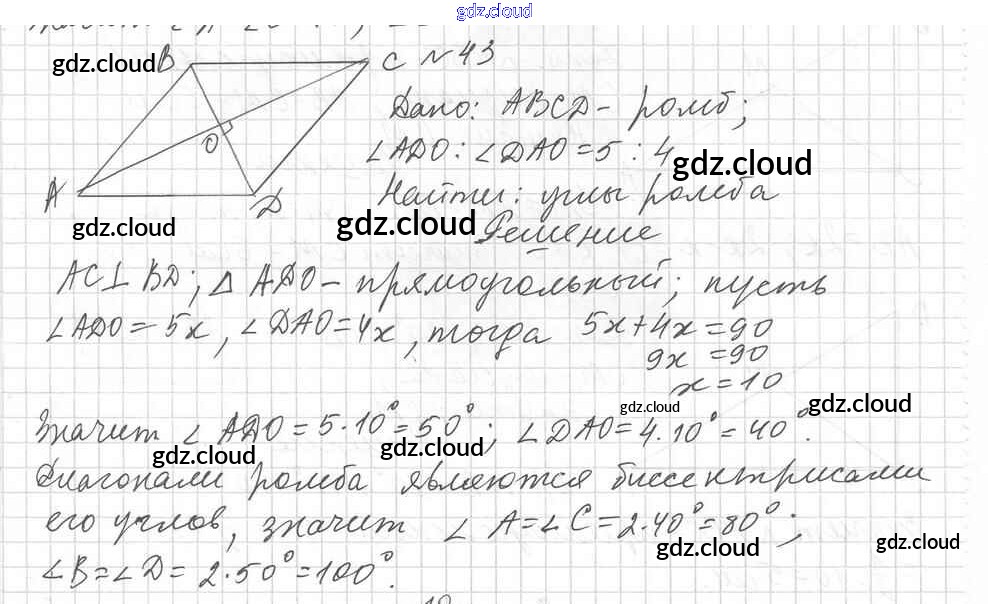 gdz.cloud
gdz.cloud B C №43
Дано: ABCD - ромб;
O
∠ADO : ∠DAO = 5 : 4
gdz.cloud
A D Найти: углы ромба
gdz.cloud gdz.cloud
Решение
AC⊥BD; △ ADO - прямоугольный; пусть
∠ADO = 5x, ∠DAO = 4x, тогда 5x+4x=90
9x = 90
x = 10
gdz.cloud gdz.cloud
Значит ∠ ADO = 5·10°=50°; ∠DAO=4·10°=40°.
gdz.cloud gdz.cloud
Диагонали ромба являются биссектрисами
его углов, значит ∠ A=∠C=2·40°=80°;
gdz.cloud gdz.cloud
∠B=∠D= 2·50°=100°.